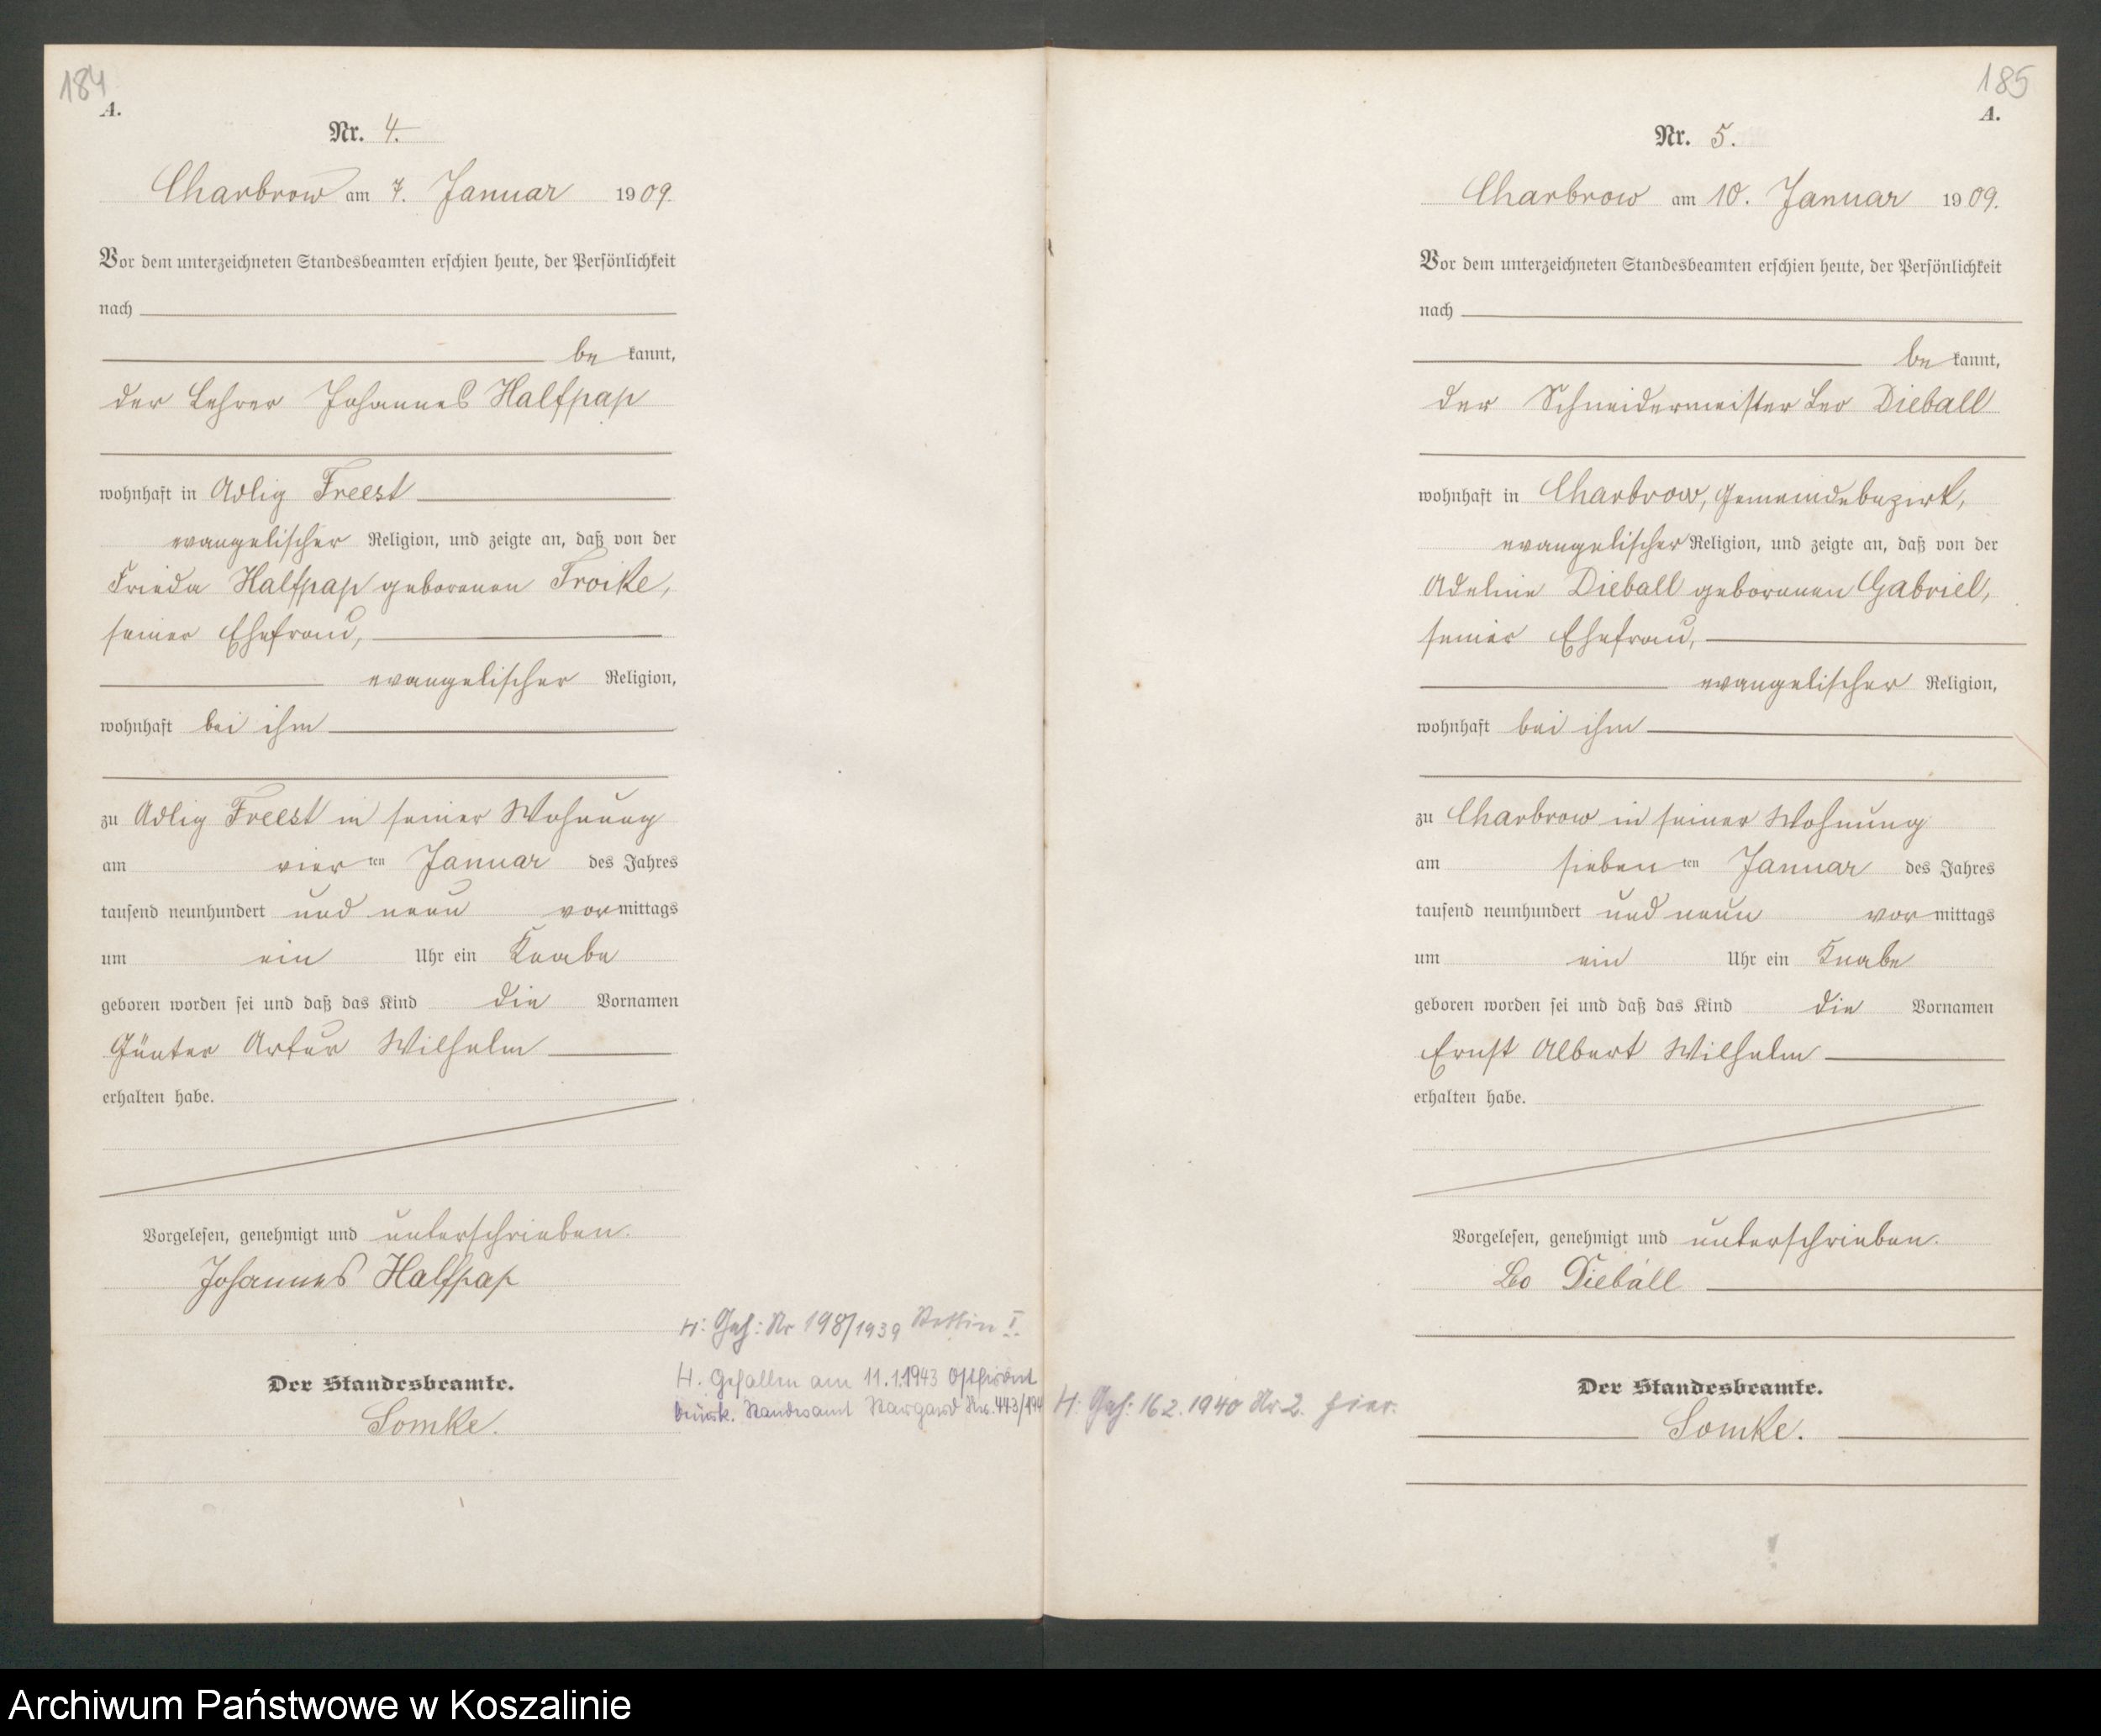 184
A.
Nr. 4.
Charbrow am 7. Januar 1909.
Vor dem unterzeichneten Standesbeamten erschien heute, der Persönlichkeit
nach
be kannt,
der Lehrer Johannes Halfpap
wohnhaft in Adlig Freest
evangelischer Religion, und zeigte an, daß von der
Frieda Halfpap geborenen Troike,
seiner Ehefrau,
evangelischer Religion,
wohnhaft bei ihm
zu Adlig Freest in seiner Wohnung
am vier ten Januar des Jahres
tausend neunhundert und neun vormittags
um ein Uhr ein Knabe
geboren worden sei und daß das Kind die Vornamen
Günter Artur Wilhelm
erhalten habe.
Vorgelesen, genehmigt und unterschrieben.
Johannes Halfpap
H: Geh: Nr 198/1939 Stettin I.
H. Gefallen am 11.1.1943 Ostfront
beurk. Standesamt Stargard Nr. 443/194
Der Standesbeamte.
Lomke.
185
A.
Nr. 5.
Charbrow am 10. Januar 1909.
Vor dem unterzeichneten Standesbeamten erschien heute, der Persönlichkeit
nach
be kannt,
der Schneidermeister Leo Dieball
wohnhaft in Charbrow, Gemeindebezirk,
evangelischer Religion, und zeigte an, daß von der
Adeline Dieball geborenen Gabriel,
seiner Ehefrau,
evangelischer Religion,
wohnhaft bei ihm
zu Charbrow in seiner Wohnung
am sieben ten Januar des Jahres
tausend neunhundert und neun vor mittags
um ein Uhr ein Knabe
geboren worden sei und daß das Kind die Vornamen
Ernst Albert Wilhelm
erhalten habe.
Vorgelesen, genehmigt und unterschrieben.
Leo Dieball
H: Geh: 16 2. 1940 Nr 2. hier.
Der Standesbeamte.
Lomke.
Archiwum Państwowe w Koszalinie